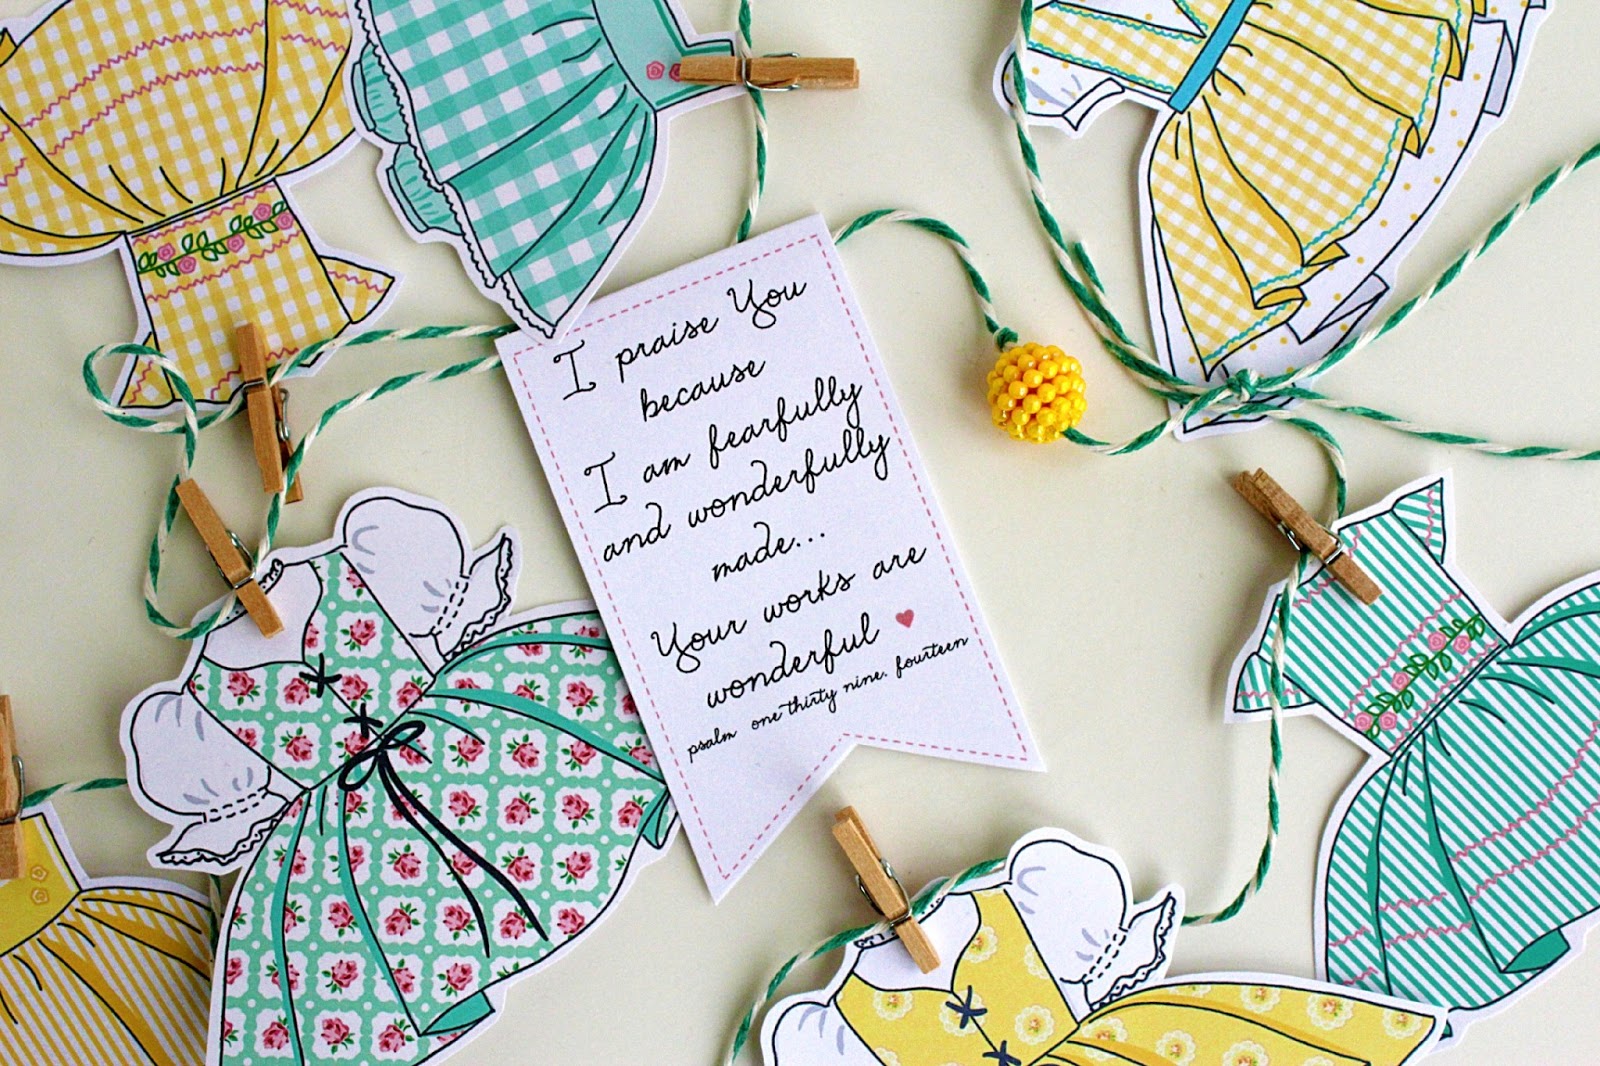 I praise You
because
I am fearfully
and wonderfully
made...
Your works are
wonderful
psalm one thirty nine. fourteen